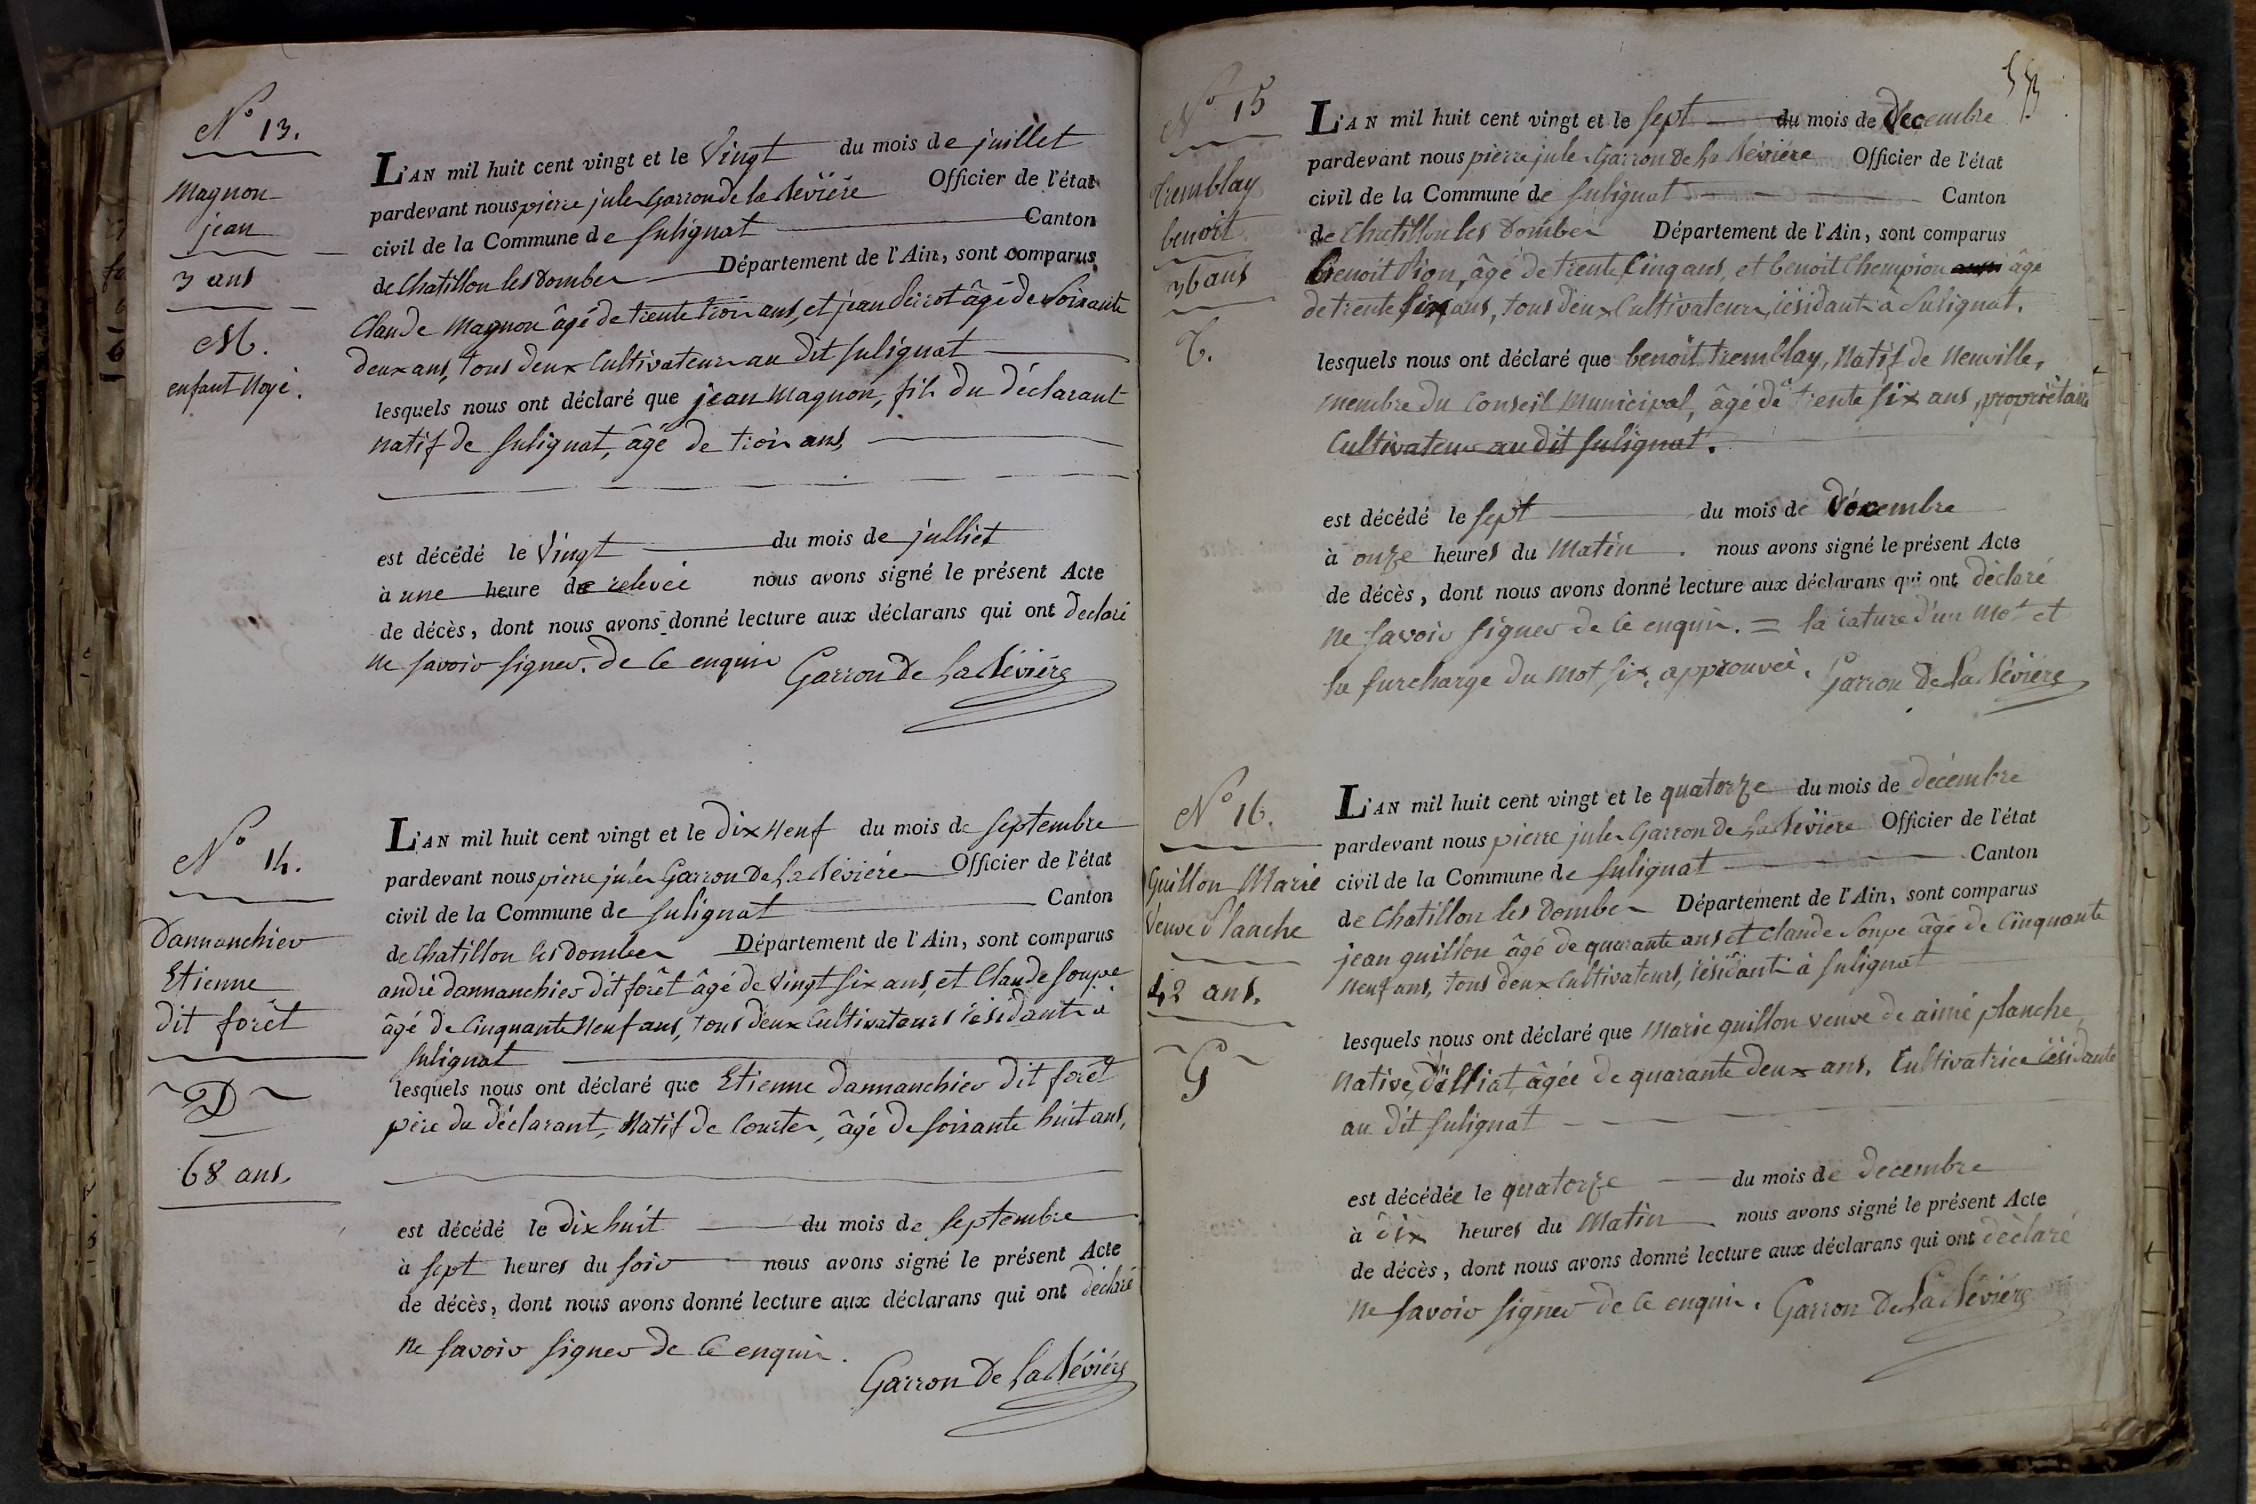 N° 13.
Magnon
jean
3 ans
M.
enfant Noyé.
L'AN mil huit cent vingt et le Vingt du mois de juillet
pardevant nous pierre jules Garron de la Bévière Officier de l'état
civil de la Commune de Sulignat Canton
de Chatillon les Dombes Département de l'Ain, sont comparus
Claude Magnon âgé de trente trois ans, et jean âgé de Soixante
deux ans, tous deux Cultivateurs au dit Sulignat
lesquels nous ont déclaré que jean Magnon, fils du déclarant
natif de Sulignat, âgé de trois ans,
est décédé le Vingt du mois de julliet
à une heure de relevée nous avons signé le présent Acte
de décès, dont nous avons donné lecture aux déclarans qui ont déclaré
ne Savoir Signer. de Ce enquis Garron De La Bévière
N° 14.
Dannanchier
Etienne
dit forêt
D
68 ans.
L'AN mil huit cent vingt et le Dix Neuf du mois de Septembre
pardevant nous pierre jules Garron De La Bévière Officier de l'état
civil de la Commune de Sulignat Canton
de Chatillon les Dombes Département de l'Ain, sont comparus
andré dannanchier dit forêt âgé de Vingt Six ans, et Claude Soupe
âgé de Cinquante Neuf ans, tous deux Cultivateurs résidants à
Sulignat
lesquels nous ont déclaré que Etienne Dannanchier dit forêt
père du déclarant, Natif de Courtes, âgé de Soixante huit ans,
est décédé le Dix huit du mois de Septembre
à Sept heures du Soir nous avons signé le présent Acte
de décès, dont nous avons donné lecture aux déclarans qui ont déclaré
Ne Savoir Signer de Ce enquis.
Garron De La Bévière
53
N° 15
Tremblay
benoit
36 ans
T.
L'AN mil huit cent vingt et le Sept du mois de Décembre
pardevant nous pierre jules Garron De La Bévière Officier de l'état
civil de la Commune de Sulignat Canton
de Chatillon les Dombes Département de l'Ain, sont comparus
benoit Pion, âgé de trente Cinq ans, et benoit Chempion âgé
de trente Six ans, tous deux Cultivateurs, résidants à Sulignat.
lesquels nous ont déclaré que benoit tremblay, Natif de Neuville,
membre du Conseil Municipal, âgé de trente Six ans, propriétaire
Cultivateur au dit Sulignat.
est décédé le Sept du mois de Décembre
à onze heures du Matin. nous avons signé le présent Acte
de décès, dont nous avons donné lecture aux déclarans qui ont déclaré
Ne Savoir Signer de Ce enquis. = la rature d'un Mot et
la Surcharge du Mot Six, approuvée. Garron De La Bévière
N° 16.
Guillon Marie
Veuve Planche
42 ans.
G
L'AN mil huit cent vingt et le quatorze du mois de décembre
pardevant nous pierre jules Garron De La Bévière Officier de l'état
civil de la Commune de Sulignat Canton
de Chatillon les Dombes Département de l'Ain, sont comparus
jean guillon âgé de quarante ans et Claude Soupe âgé de Cinquante
Neuf ans, tous deux Cultivateurs, résidants à Sulignat
lesquels nous ont déclaré que Marie guillon veuve de aimé planche,
Native, d'Illiat, âgée de quarante deux ans, Cultivatrice résidante
au dit Sulignat
est décédée le quatorze du mois de decembre
à dix heures du Matin nous avons signé le présent Acte
de décès, dont nous avons donné lecture aux déclarans qui ont déclaré
Ne Savoir Signer de Ce enquis. Garron De La Bévière